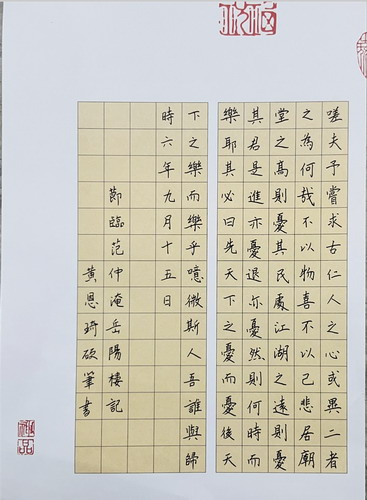 嗟夫予嘗求古仁人之心或異二者
之為何哉不以物喜不以己悲居廟
堂之高則憂其民處江湖之遠則憂
其君是進亦憂退亦憂然則何時而
樂耶其必曰先天下之憂而憂後天
下之樂而樂乎噫微斯人吾誰與歸
時六年九月十五日
節臨范仲淹岳陽樓記
黄恩琦硬筆書